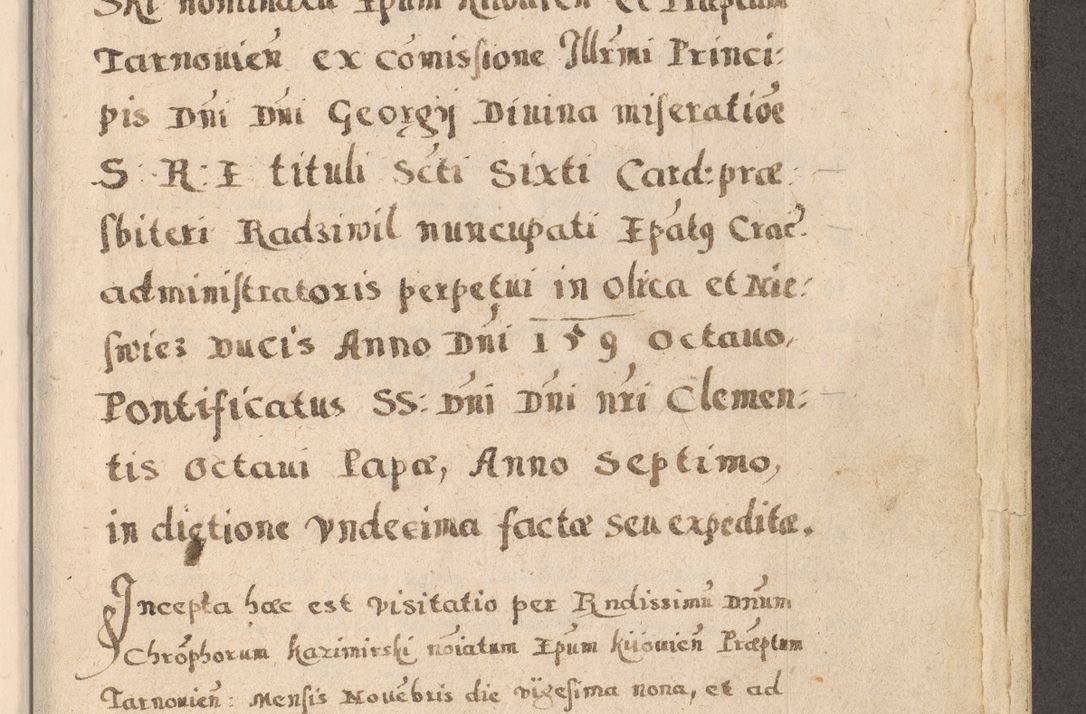 ski nominatū Ep̄um Kiiovień et Præp̄tum
Tarnovień ex cōmissione Illr̄mi Princi:
pis Dn̄i Dn̄i Georgÿ Divina miseratiōe
S: R: I tituli Sc̄ti Sixti Card: præ:
sbiteri Radziwil nuncupati Ep̄atꝯ Crać:
administratoris perpetui in Olica et Nie:
swiez Ducis Anno Dn̄i 159 octavo,
Pontificatus SS: Dn̄i Dn̄i nr̄i Clemen:
tis octavi Papæ, Anno Septimo,
in dictione Vndecima factæ seu expeditæ.
Incepta hæc est visitatio per Rndissimū Dn̄um
Chrōphorum Kazimirski nōiatum Ep̄um Kiiovień Præp̄tum
Tarnovień: Mensis Novēbris die vigesima nona, et ad